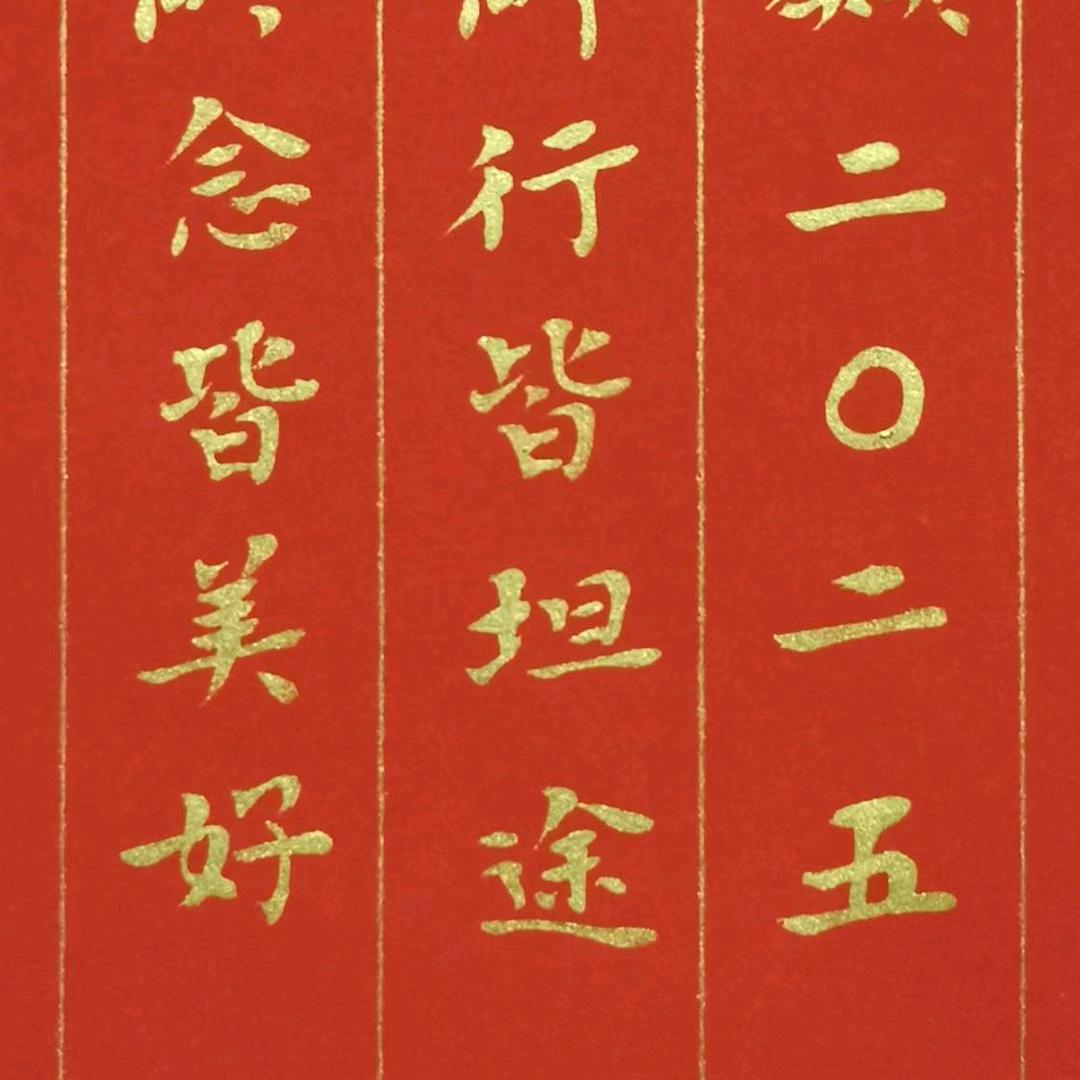 二〇二五
行皆坦途
念皆美好